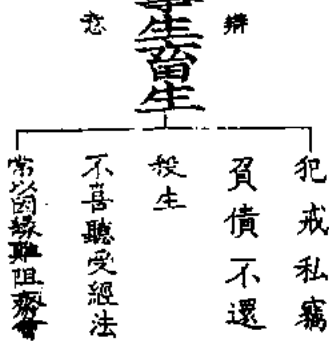 辯
意
事生畜生
犯戒私竊
負債不還
殺生
不喜聽受經法
常以因緣難阻齋會